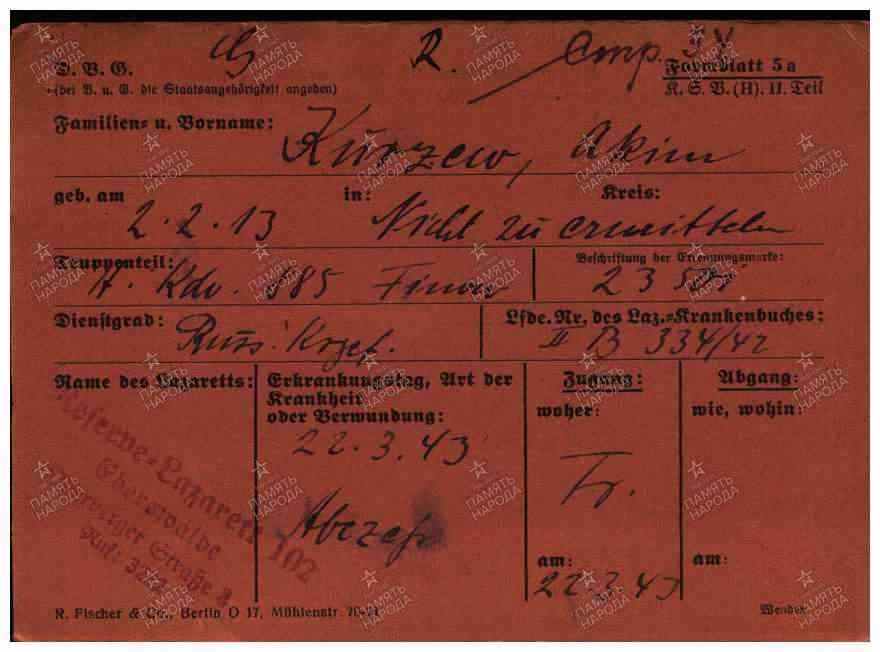 R.
D. V. G.
Formblatt 5a
(bei V. u. G. die Staatsangehörigkeit angeben)
K. S. V. (H). II. Teil
Familien= u. Vorname:
Kurzew, Akim
geb. am
in:
Kreis:
2.2.13
Nicht zu ermitteln
Truppenteil:
Beschriftung der Erkennungsmarke:
A. Kdo. 585 Finow
Dienstgrad:
Lfde. Nr. des Laz.=Krankenbuches:
Russ. Krgef.
II B 334/42
Name des Lazaretts:
Erkrankungstag, Art der
Krankheit
oder Verwundung:
Zugang:
woher:
Abgang:
wie, wohin:
22.3.43
Reserve=Lazarett 102
Eberswalde
Straße
Tr.
Abszeß
am:
am:
22.3.43
R. Fischer & Co., Berlin O 17, Mühlenstr. 70-71
Wenden
ПАМЯТЬ
НАРОДА